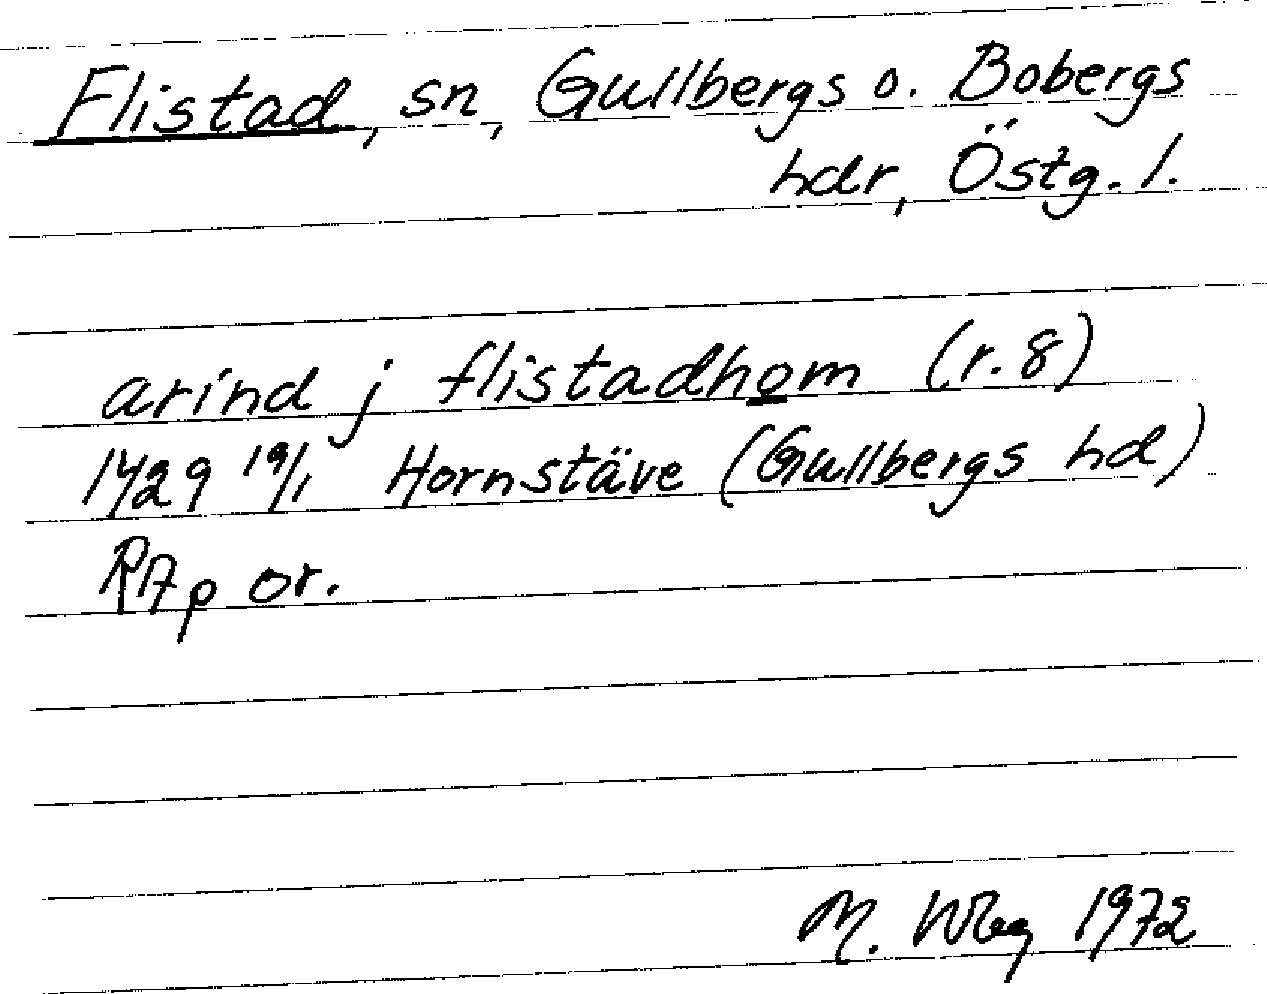 Flistad, sn, Gullbergs o. Bobergs
hdr, Östg. l.
arind j flistadhom (r. 8)
1429 19/1 Hornstäve (Gullbergs hd)
RAp or.
M. Wbg 1972